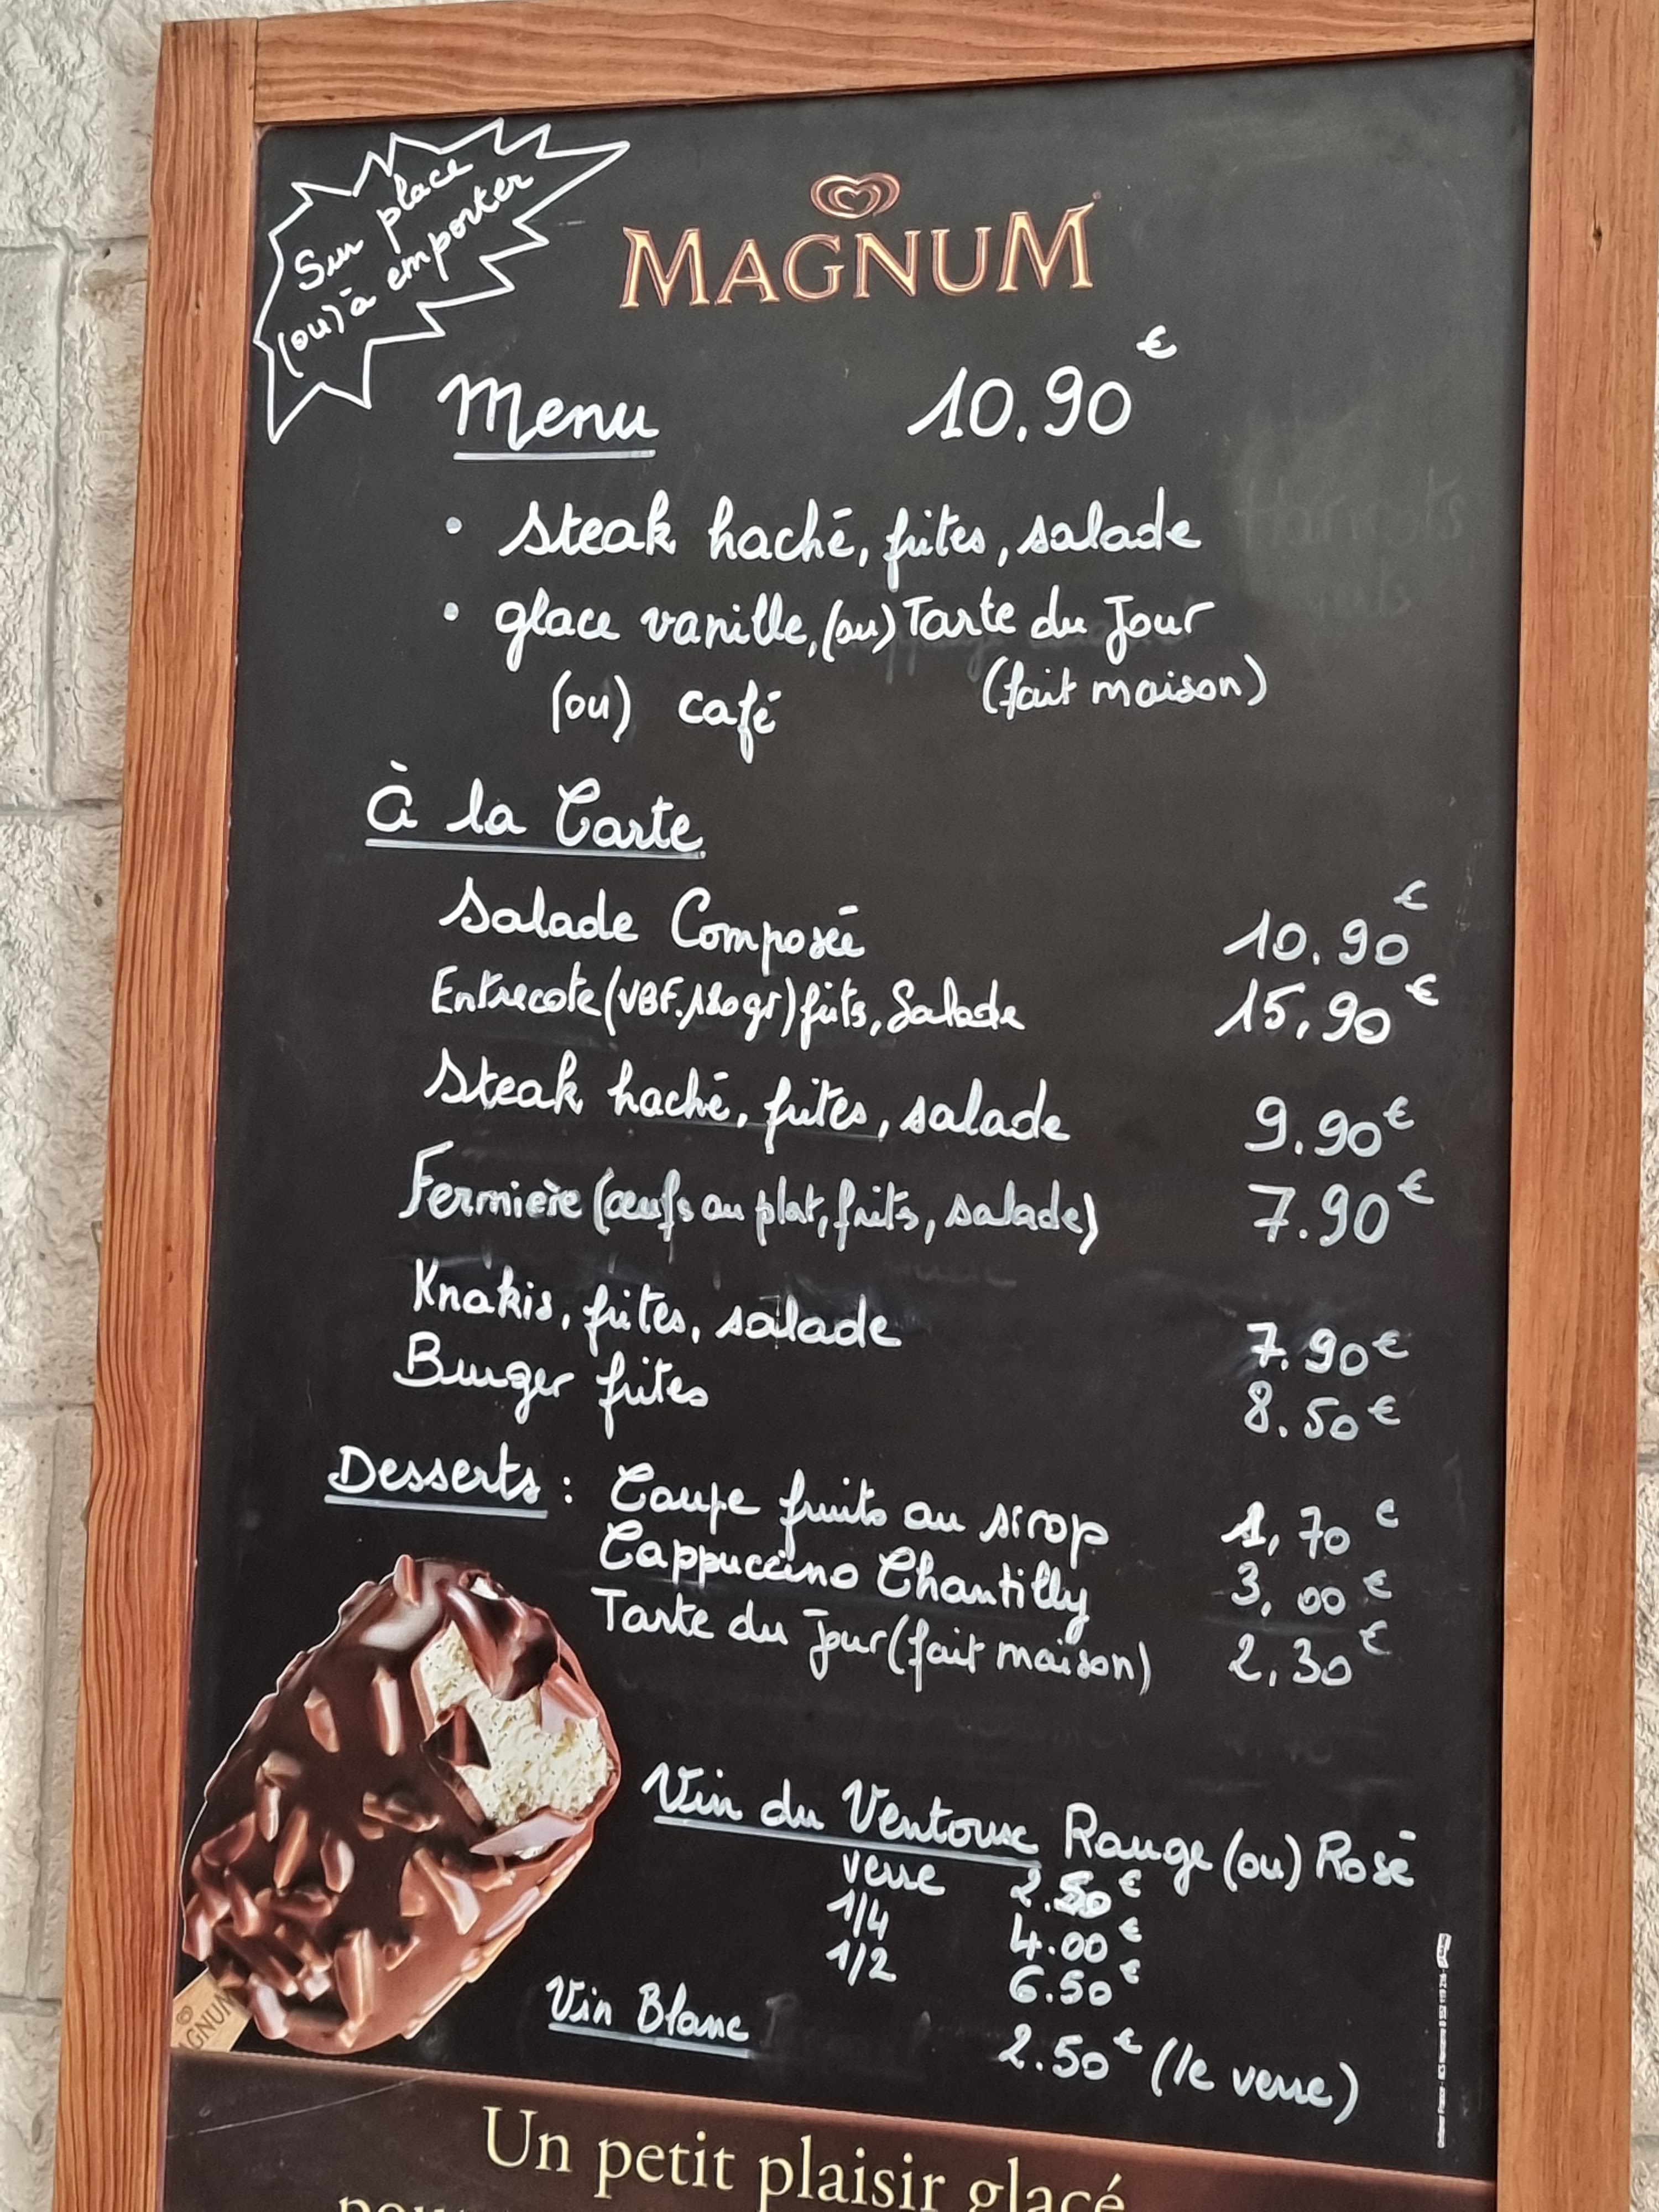 Sur place
(ou) à emporter
MAGNUM
Menu 10.90€
• steak haché, frites, salade
• glace vanille, (ou) Tarte du Jour
(ou) café (fait maison)
À la Carte
Salade Composée 10.90€
Entrecote (VBF. 180gr) frits, Salade 15,90€
Steak haché, frites, salade 9.90€
Fermière (œufs au plat, frits, salade) 7.90€
Knakis, frites, salade 7.90€
Burger frites 8.50€
Desserts : Coupe fruits au sirop 1,70€
Cappuccino Chantilly 3,00€
Tarte du Jour (fait maison) 2,30€
Vin du Ventoux Rouge (ou) Rosé
verre 2.50€
1/4 4.00€
1/2 6.50€
Vin Blanc 2.50€ (le verre)
GNUM
Un petit plaisir glacé